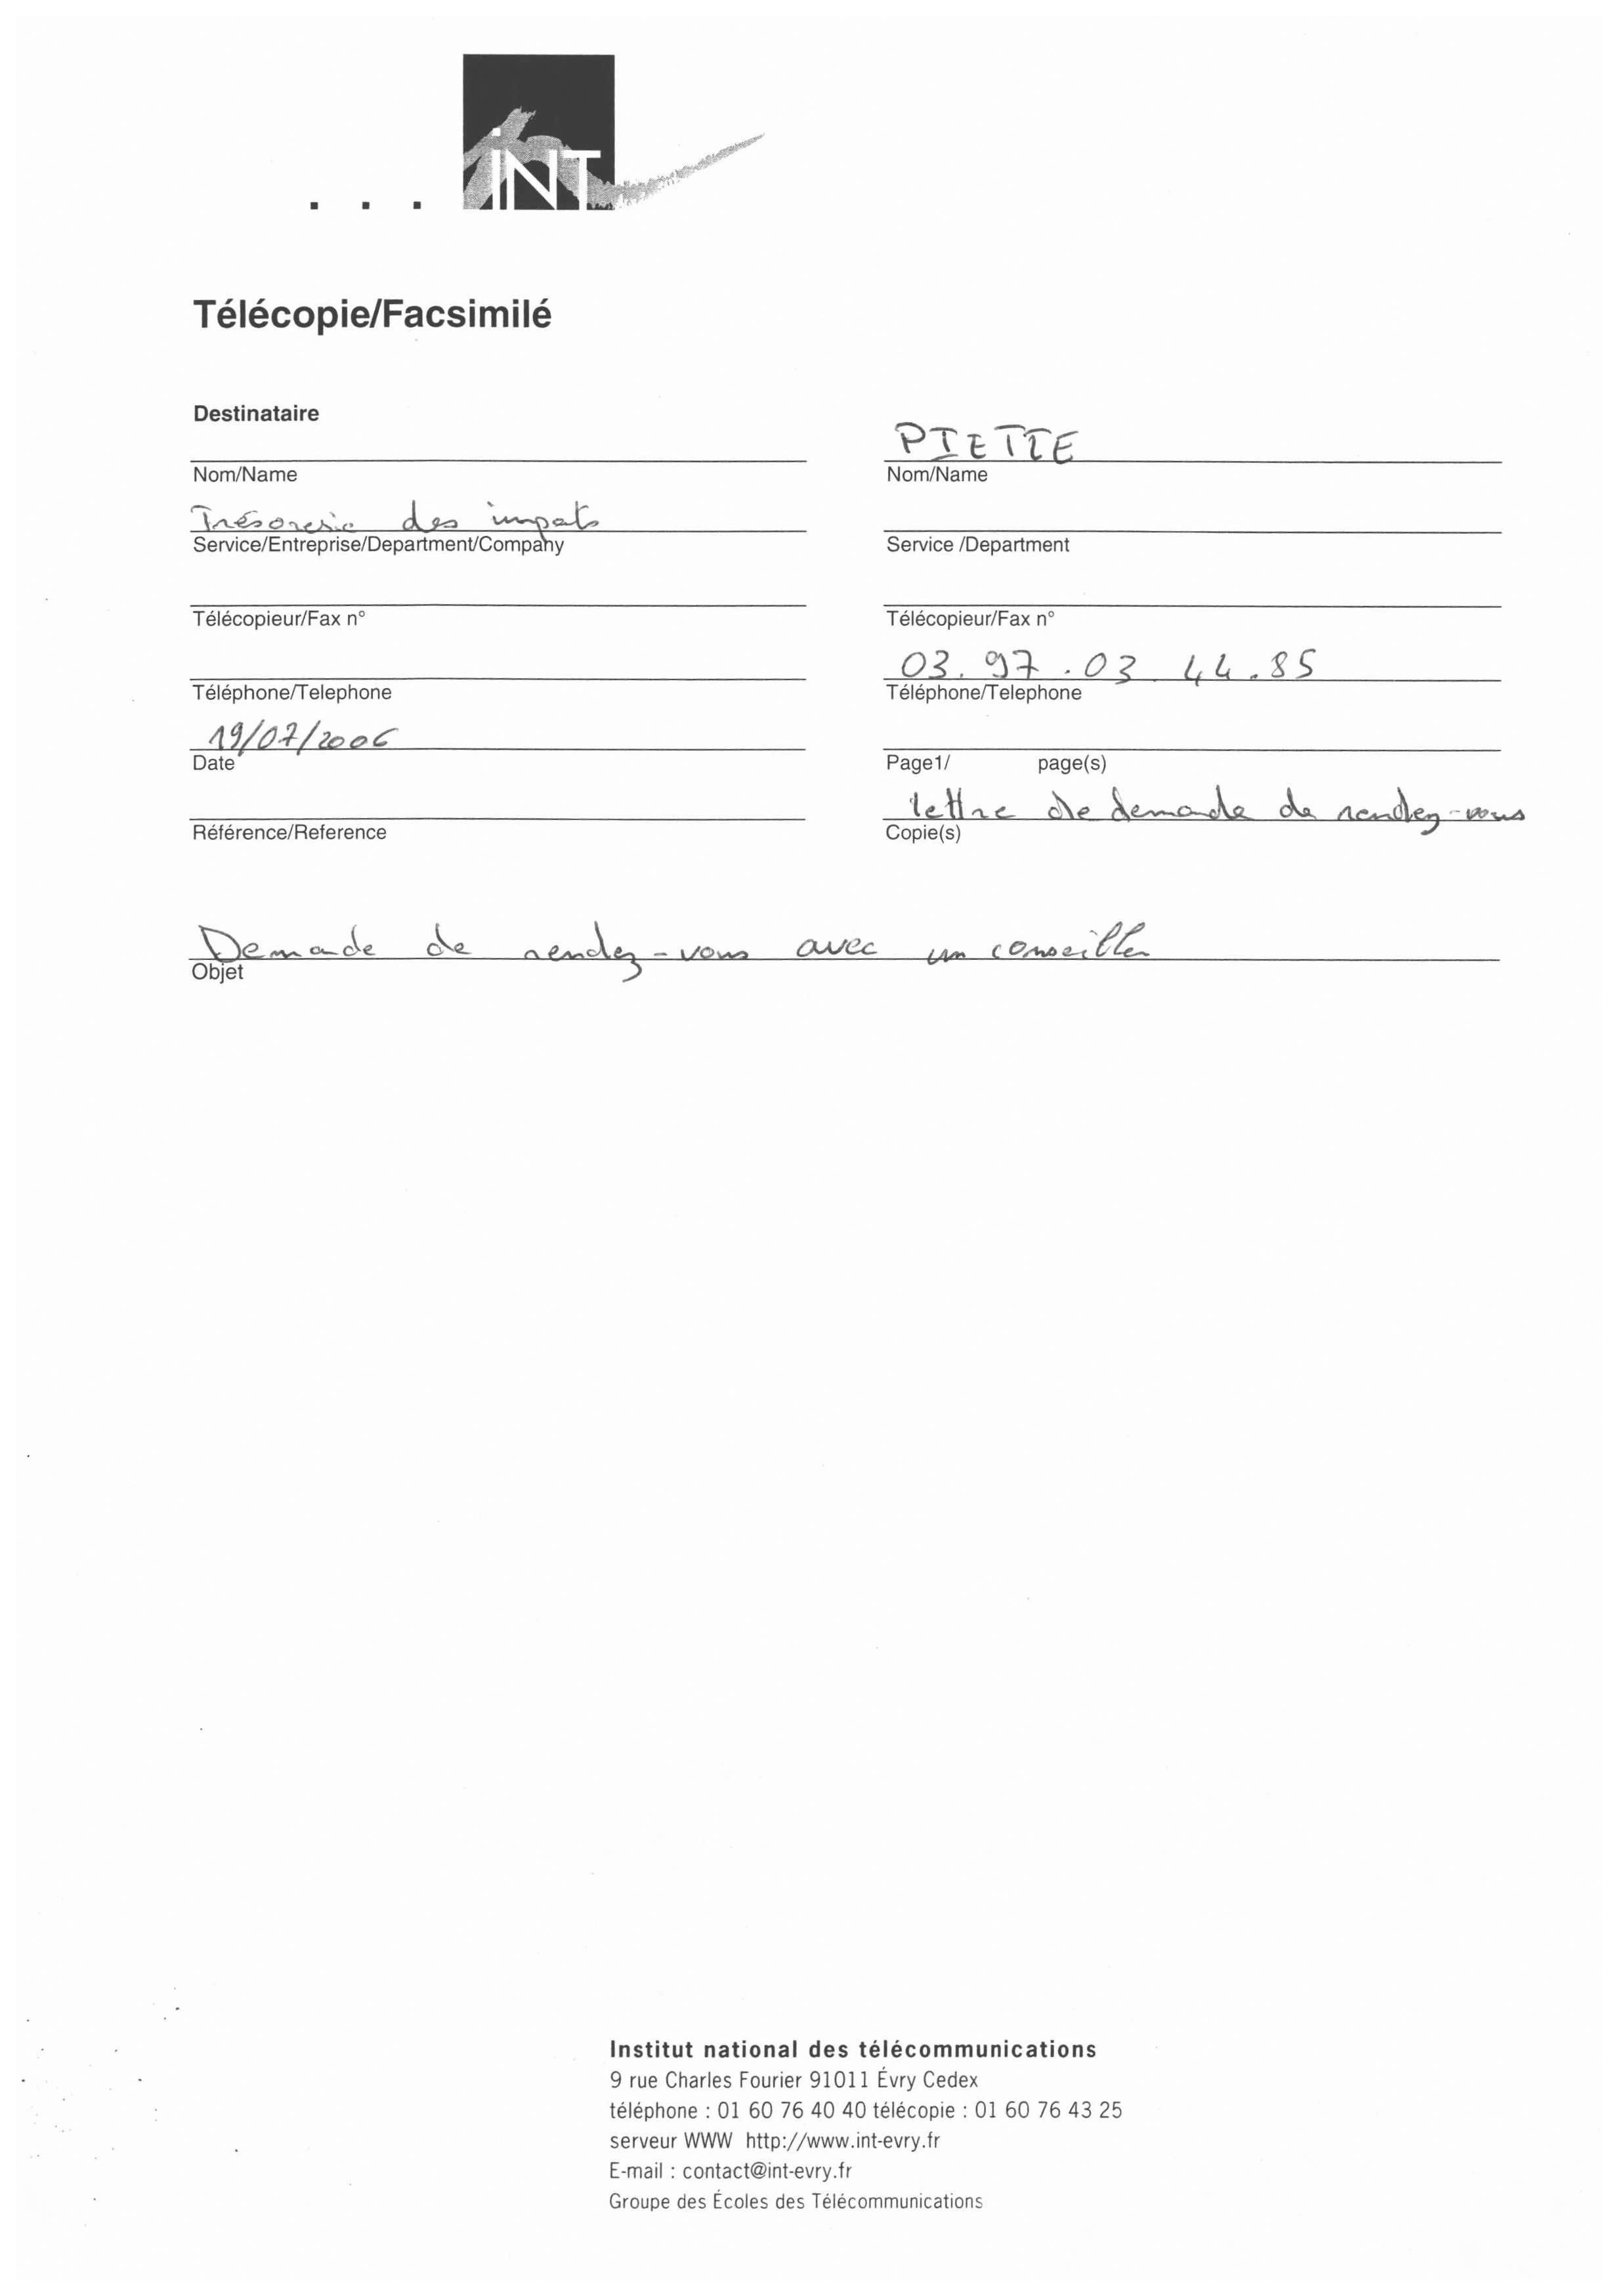 iNT
Télécopie/Facsimilé
Destinataire
Nom/Name
Trésorerie des impots
Service/Entreprise/Department/Company
Télécopieur/Fax n°
Téléphone/Telephone
19/07/2006
Date
Référence/Reference
PIETTE
Nom/Name
Service /Department
Télécopieur/Fax n°
03.97.03 44.85
Téléphone/Telephone
Page1/ page(s)
lettre de demande de rendez-vous
Copie(s)
Demande de rendez-vous avec un conseiller
Objet
Institut national des télécommunications
9 rue Charles Fourier 91011 Évry Cedex
téléphone : 01 60 76 40 40 télécopie : 01 60 76 43 25
serveur WWW http://www.int-evry.fr
E-mail : contact@int-evry.fr
Groupe des Écoles des Télécommunications